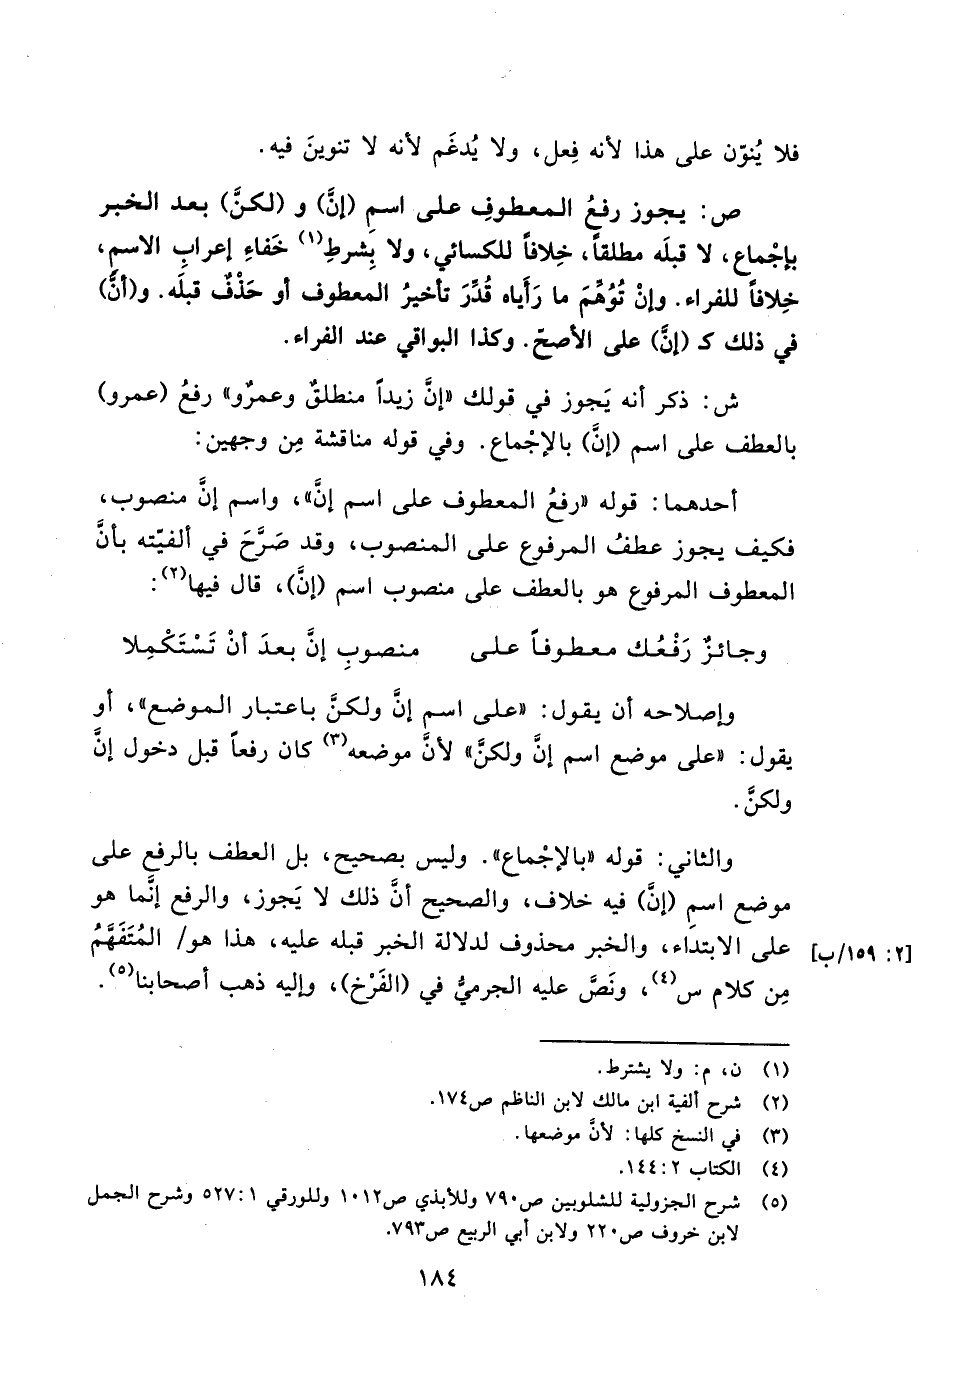 فلا يُنوّن على هذا لأنه فِعل، ولا يُدغَم لأنه لا تنوينَ فيه.
ص: يجوز رفعُ المعطوفِ على اسمِ (إنَّ) و (لكنَّ) بعد الخبر
بإجْماع، لا قبلَه مطلقاً، خِلافاً للكسائي، ولا بِشرطِ(١) خَفاءِ إعرابِ الاسمِ،
خِلافاً للفراء. وإنْ تُوُهِّمَ ما رَأَياه قُدِّرَ تأخيرُ المعطوف أو حَذْفٌ قبلَه. و(أنَّ)
في ذلك كـ (إنَّ) على الأصحّ. وكذا البواقي عند الفراء.
ش: ذكر أنه يَجوز في قولك «إنَّ زيداً منطلقٌ وعمرٌو» رفعُ (عمرو)
بالعطف على اسم (إنَّ) بالإجْماع. وفي قوله مناقشة مِن وجهين:
أحدهما: قوله «رفعُ المعطوف على اسم إنَّ»، واسم إنَّ منصوب،
فكيف يجوز عطفُ المرفوع على المنصوب، وقد صَرَّحَ في ألفيّته بأنَّ
المعطوف المرفوع هو بالعطف على منصوب اسم (إنَّ)، قال فيها(٢):
وجائزٌ رَفْعُك معطوفاً على منصوبِ إنَّ بعدَ أنْ تَسْتَكْمِلا
وإصلاحه أن يقول: «على اسم إنَّ ولكنَّ باعتبار الموضع»، أو
يقول: «على موضع اسم إنَّ ولكنَّ» لأنَّ موضعه(٣) كان رفعاً قبل دخول إنَّ
ولكنَّ.
والثاني: قوله «بالإجْماع». وليس بصحيح، بل العطف بالرفع على
موضع اسمِ (إنَّ) فيه خلاف، والصحيح أنَّ ذلك لا يَجوز، والرفع إنَّما هو
على الابتداء، والخبر محذوف لدلالة الخبر قبله عليه، هذا هو/ المُتَفَهَّمُ [٢: ١٥٩/ب]
مِن كلام س(٤)، ونَصَّ عليه الجرميُّ في (الفَرْخ)، وإليه ذهب أصحابنا(٥).
(١) ن، م: ولا يشترط.
(٢) شرح ألفية ابن مالك لابن الناظم ص١٧٤.
(٣) في النسخ كلها: لأنَّ موضعها.
(٤) الكتاب ٢: ١٤٤.
(٥) شرح الجزولية للشلوبين ص٧٩٠ وللأبذي ص١٠١٢ وللورقي ١: ٥٢٧ وشرح الجمل
لابن خروف ص٢٢٠ ولابن أبي الربيع ص٧٩٣.
١٨٤